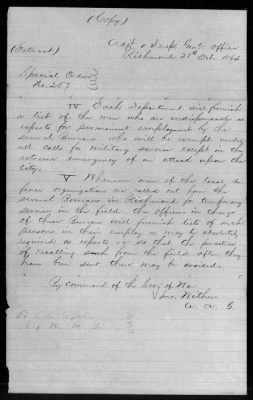 (Copy)
Adjt. & Insp. Genl. Office
(Extract)
Richmond 28" Oct. 1864
Special Orders
No. 257
IV Each Department will furnish
a list of the men who are indispensably as
experts for permanent employment by the
several Bureaus, who will be exempt under
all calls for Military service except in the
extreme emergency of an attack upon the
city.
V Whenever men of the local de-
fence organizations are called out from the
several Bureaus in Richmond for temporary
service in the field, the Officers in charge
of these Bureaus will furnish lists of such
persons in their employ as may be absolutely
required as experts, so that the practice
of recalling such from the field after they
have been sent there may be avoided.
By command of the Secy. of War
Jno. Withers
A. A. G.